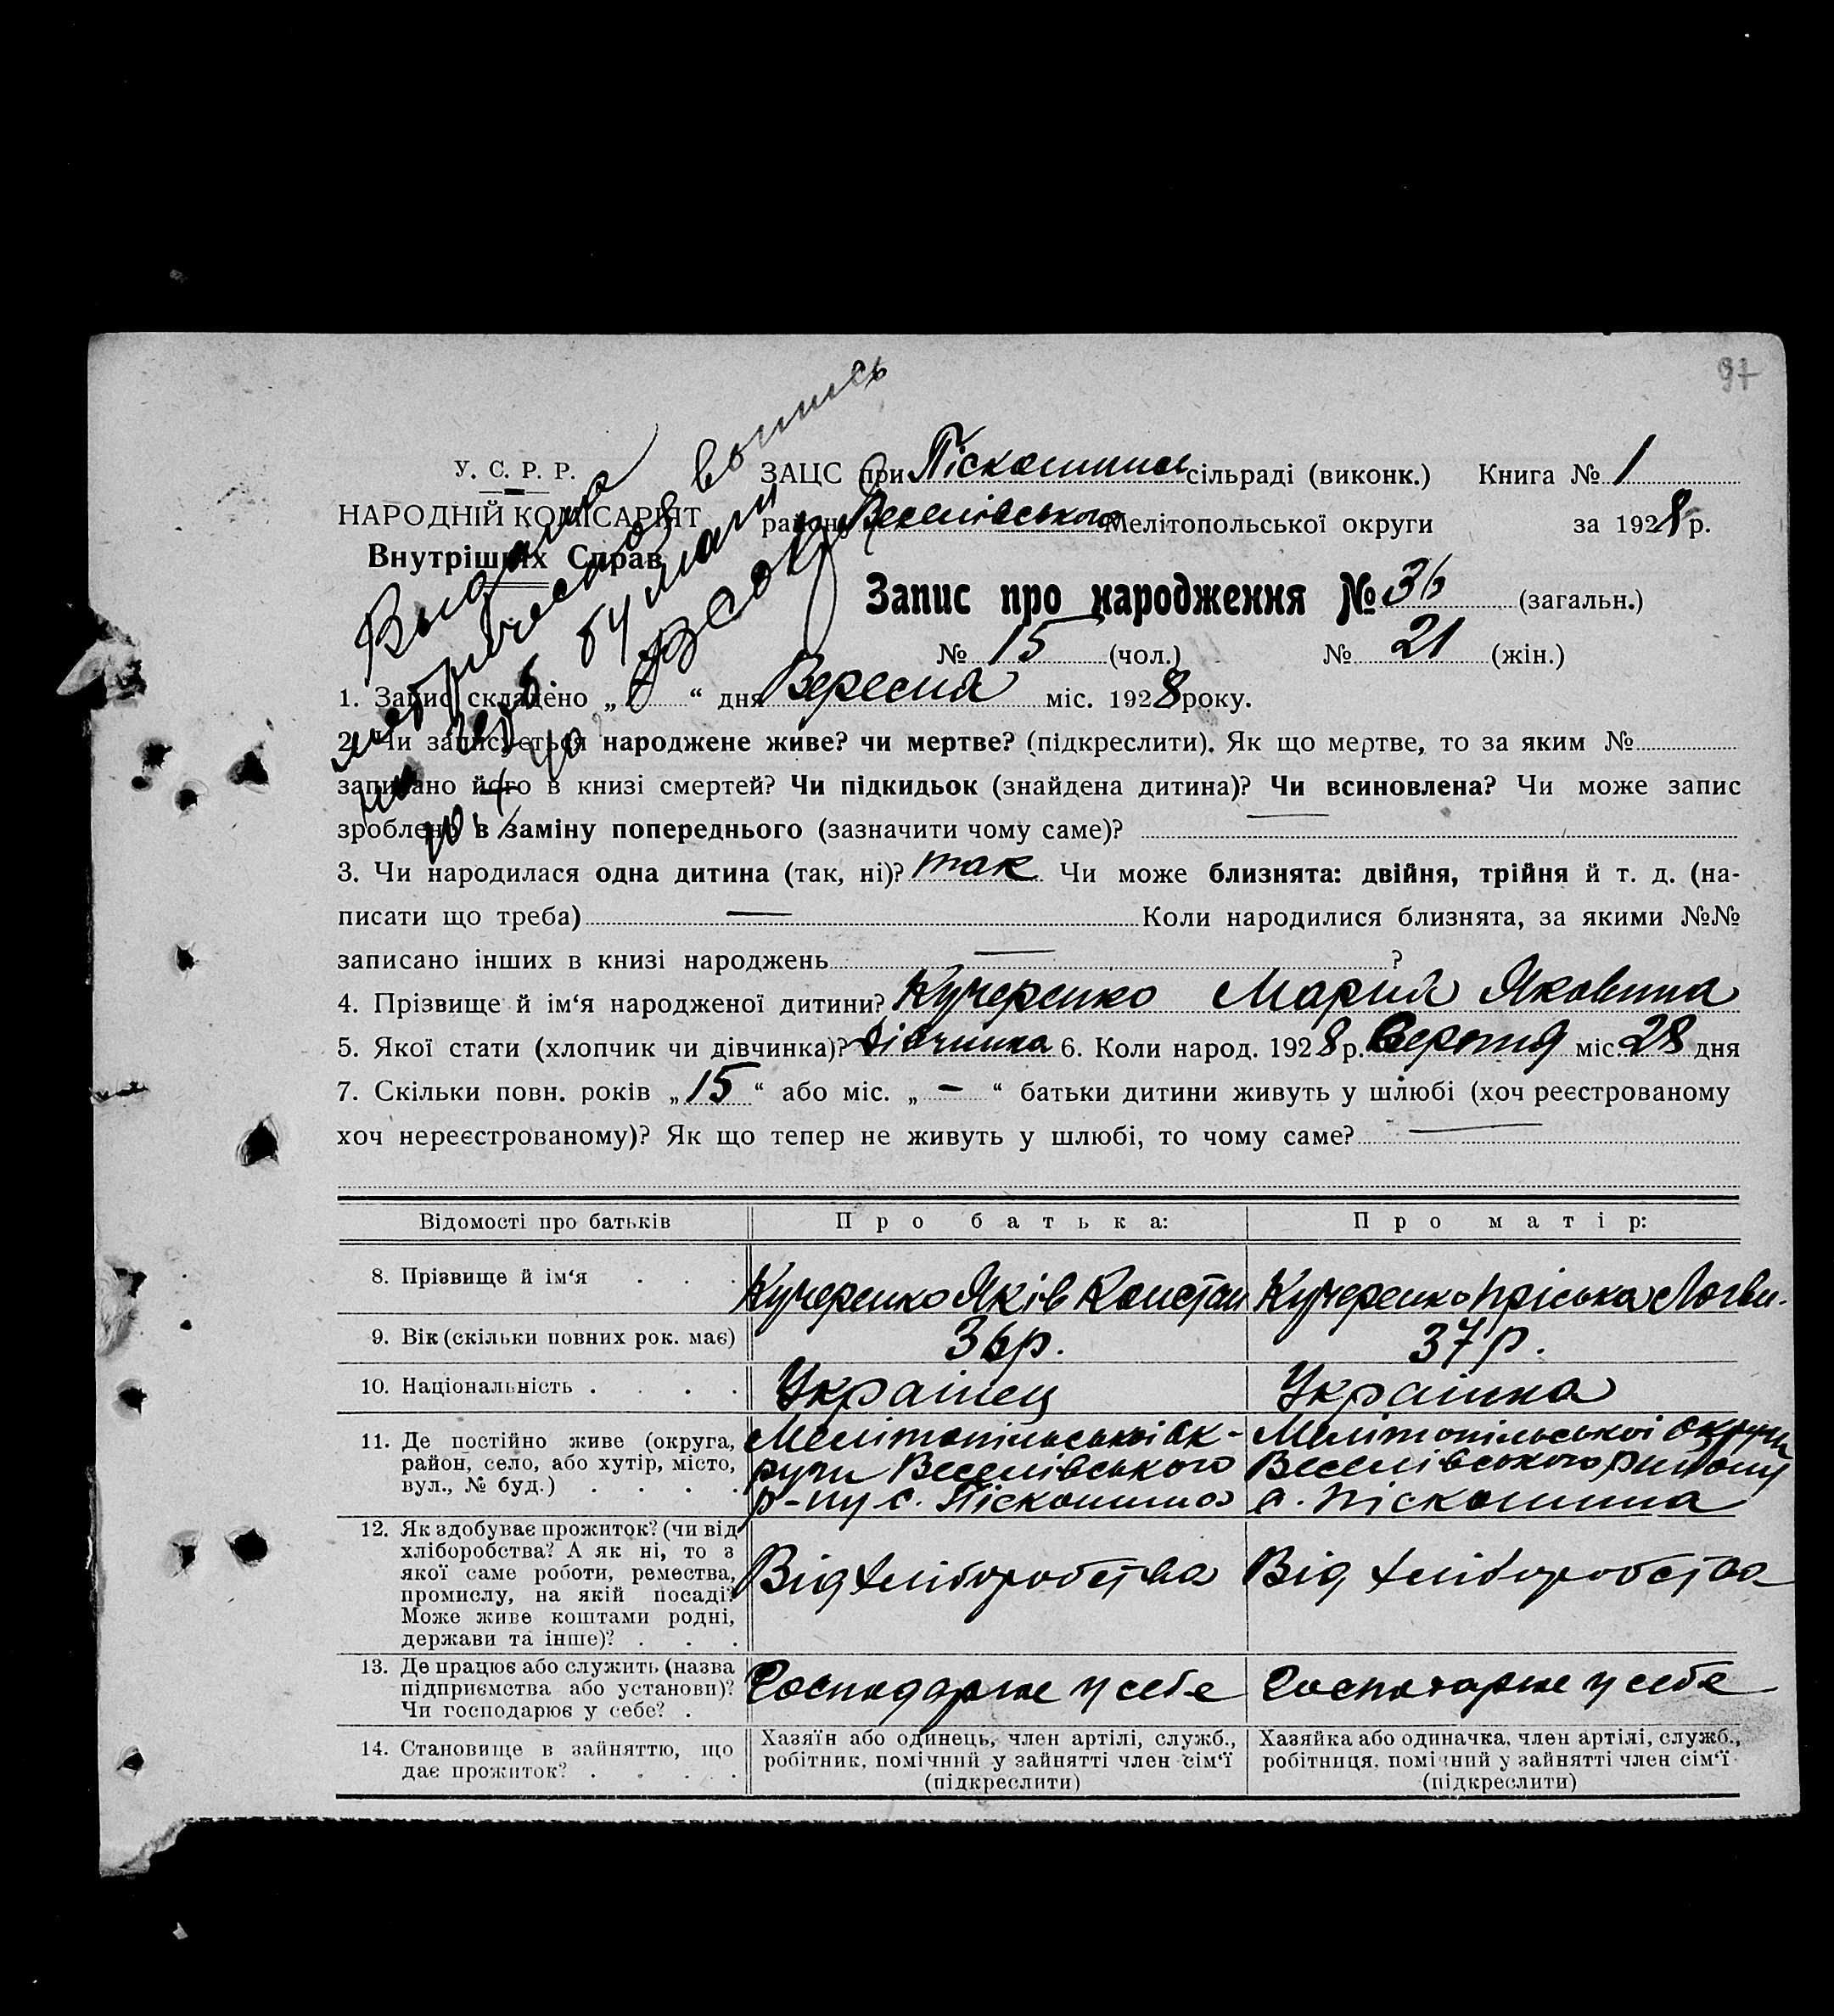 97
У. С. Р. Р.
НАРОДНІЙ КОМІСАРІЯТ
Внутрішніх Справ
Выдана
метрическоя вопись
ЗАЦС при Піскошинсь сільраді (виконк.) Книга № 1
району Веселівського Мелітопольської округи за 1928 р.
Запис про народження № 36 (загальн.)
№ 15 (чол.) № 21 (жін.)
1. Запис складено „ “ дня Вересня міс. 1928 року.
2. Чи записується народжене живе? чи мертве? (підкреслити). Як що мертве, то за яким №
записано його в книзі смертей? Чи підкидьок (знайдена дитина)? Чи всиновлена? Чи може запис
зроблено в заміну попереднього (зазначити чому саме)?
3. Чи народилася одна дитина (так, ні)? так Чи може близнята: двійня, трійня й т. д. (на-
писати що треба) — Коли народилися близнята, за якими №№
записано інших в книзі народжень — ?
4. Прізвище й ім‘я народженої дитини? Кучеренко Марія Яковина
5. Якої стати (хлопчик чи дівчинка)? Дівчинка 6. Коли народ. 1928 р. Верепня міс. 28 дня
7. Скільки повн. років „15“ або міс. „—“ батьки дитини живуть у шлюбі (хоч реєстрованому
хоч нереєстрованому)? Як що тепер не живуть у шлюбі, то чому саме? —
Відомості про батьків Про батька: Про матір:
8. Прізвище й ім‘я . . . Кучеренко Яків Констан Кучеренко Пріська Логви-
9. Вік (скільки повних рок. має) 36 р. 37 р.
10. Національність . . . . Українец Українка
11. Де постійно живе (округа, район, село, або хутір, місто, вул., № буд.) . . . .
Мелітопільської ок-
руги Веселівського
р-ну с. Піскошина
Мелітопільської округи
Веселівського району
с. Піскошина
12. Як здобуває прожиток? (чи від хліборобства? А як ні, то з якої саме роботи, ремества, промислу, на якій посаді? Може живе коштами родні, держави та інше)? . . .
Від хліборобства Від хліборобства
13. Де працює або служить (назва підприємства або установи)? Чи господарює у себе? .
Господарює у себе Господарює у себе
14. Становище в зайняттю, що дає прожиток? . . . .
Хазяїн або одинець, член артілі, служб.,
робітник, помічний у зайнятті член сім‘ї
(підкреслити)
Хазяйка або одиначка, член артілі, служб.,
робітниця, помічний у зайнятті член сім‘ї
(підкреслити)